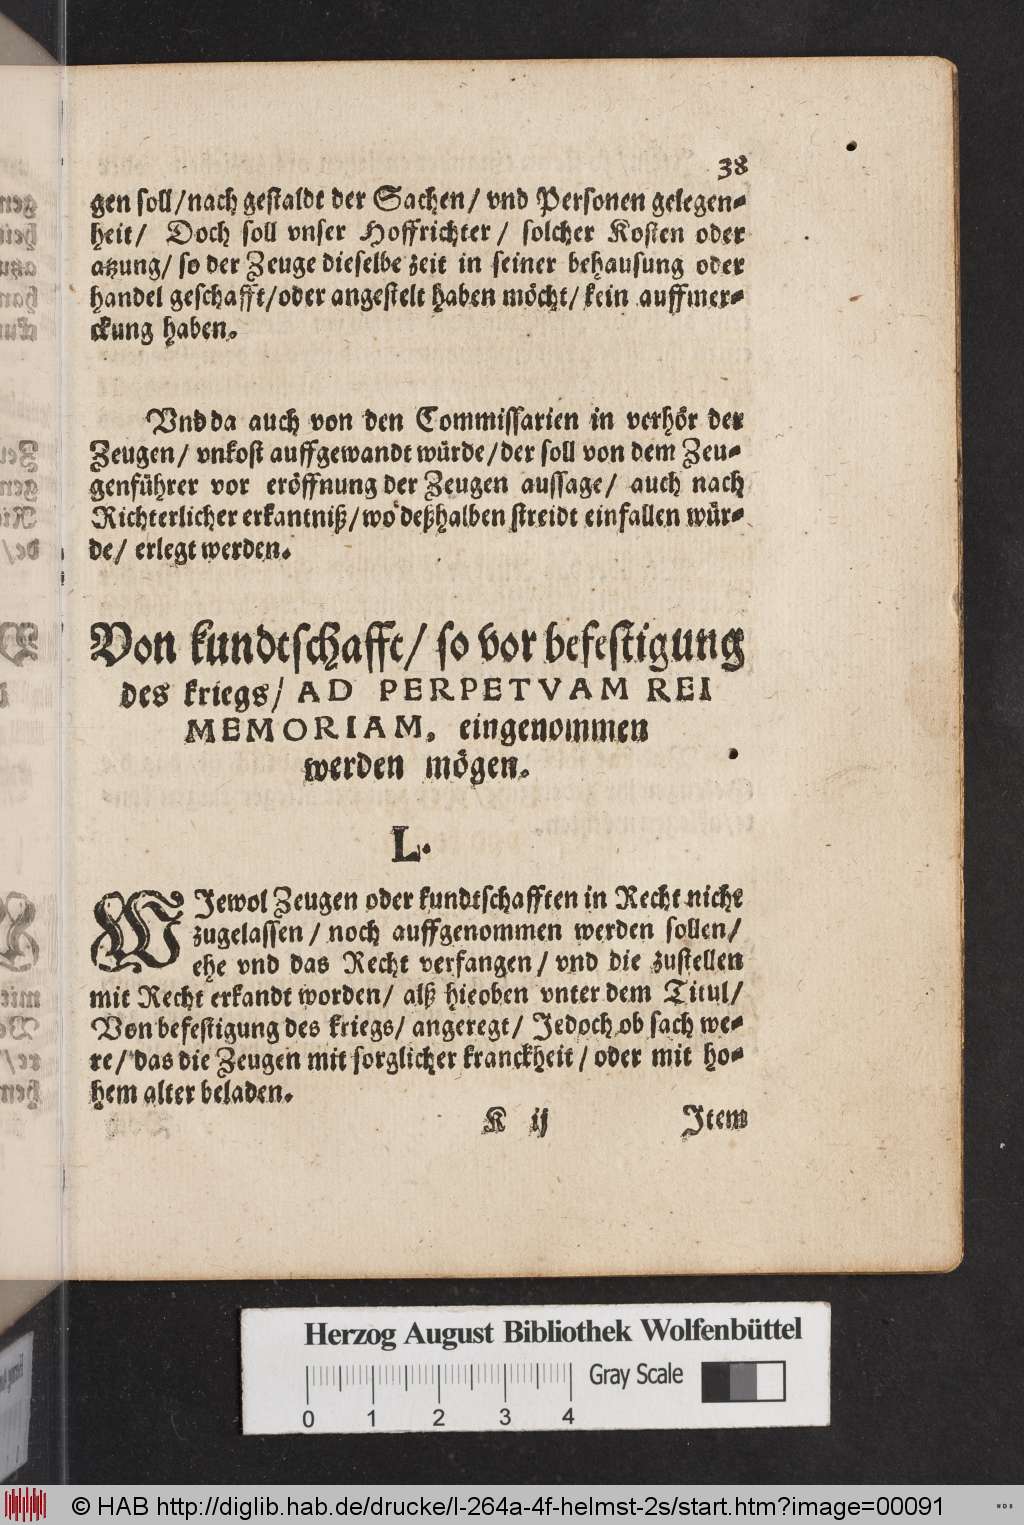 38
gen soll/nach gestaldt der Sachen/ vnd Personen gelegen-
heit/ Doch soll vnser Hoffrichter/ solcher Kosten oder
atzung/ so der Zeuge dieselbe zeit in seiner behausung oder
handel geschafft/oder angestelt haben möcht/ kein auffmer-
ckung haben.
Vnd da auch von den Commissarien in verhör der
Zeugen/ vnkost auffgewandt würde/der soll von dem Zeu-
genführer vor eröffnung der Zeugen aussage/ auch nach
Richterlicher erkantniß/wo deßhalben streidt einfallen wür-
de/ erlegt werden.
Von kundtschafft/ so vor befestigung
des kriegs/ AD PERPETVAM REI
MEMORIAM, eingenommen
werden mögen.
L.
WJewol Zeugen oder kundtschafften in Recht nicht
zugelassen/ noch auffgenommen werden sollen/
ehe vnd das Recht verfangen/ vnd die zustellen
mit Recht erkandt worden/ alß hieoben vnter dem Titul/
Von befestigung des kriegs/ angeregt/ Jedoch ob sach we-
re/ das die Zeugen mit sorglicher kranckheit/ oder mit ho-
hem alter beladen.
K ij Item
Herzog August Bibliothek Wolfenbüttel
Gray Scale
0 1 2 3 4
© HAB http://diglib.hab.de/drucke/l-264a-4f-helmst-2s/start.htm?image=00091